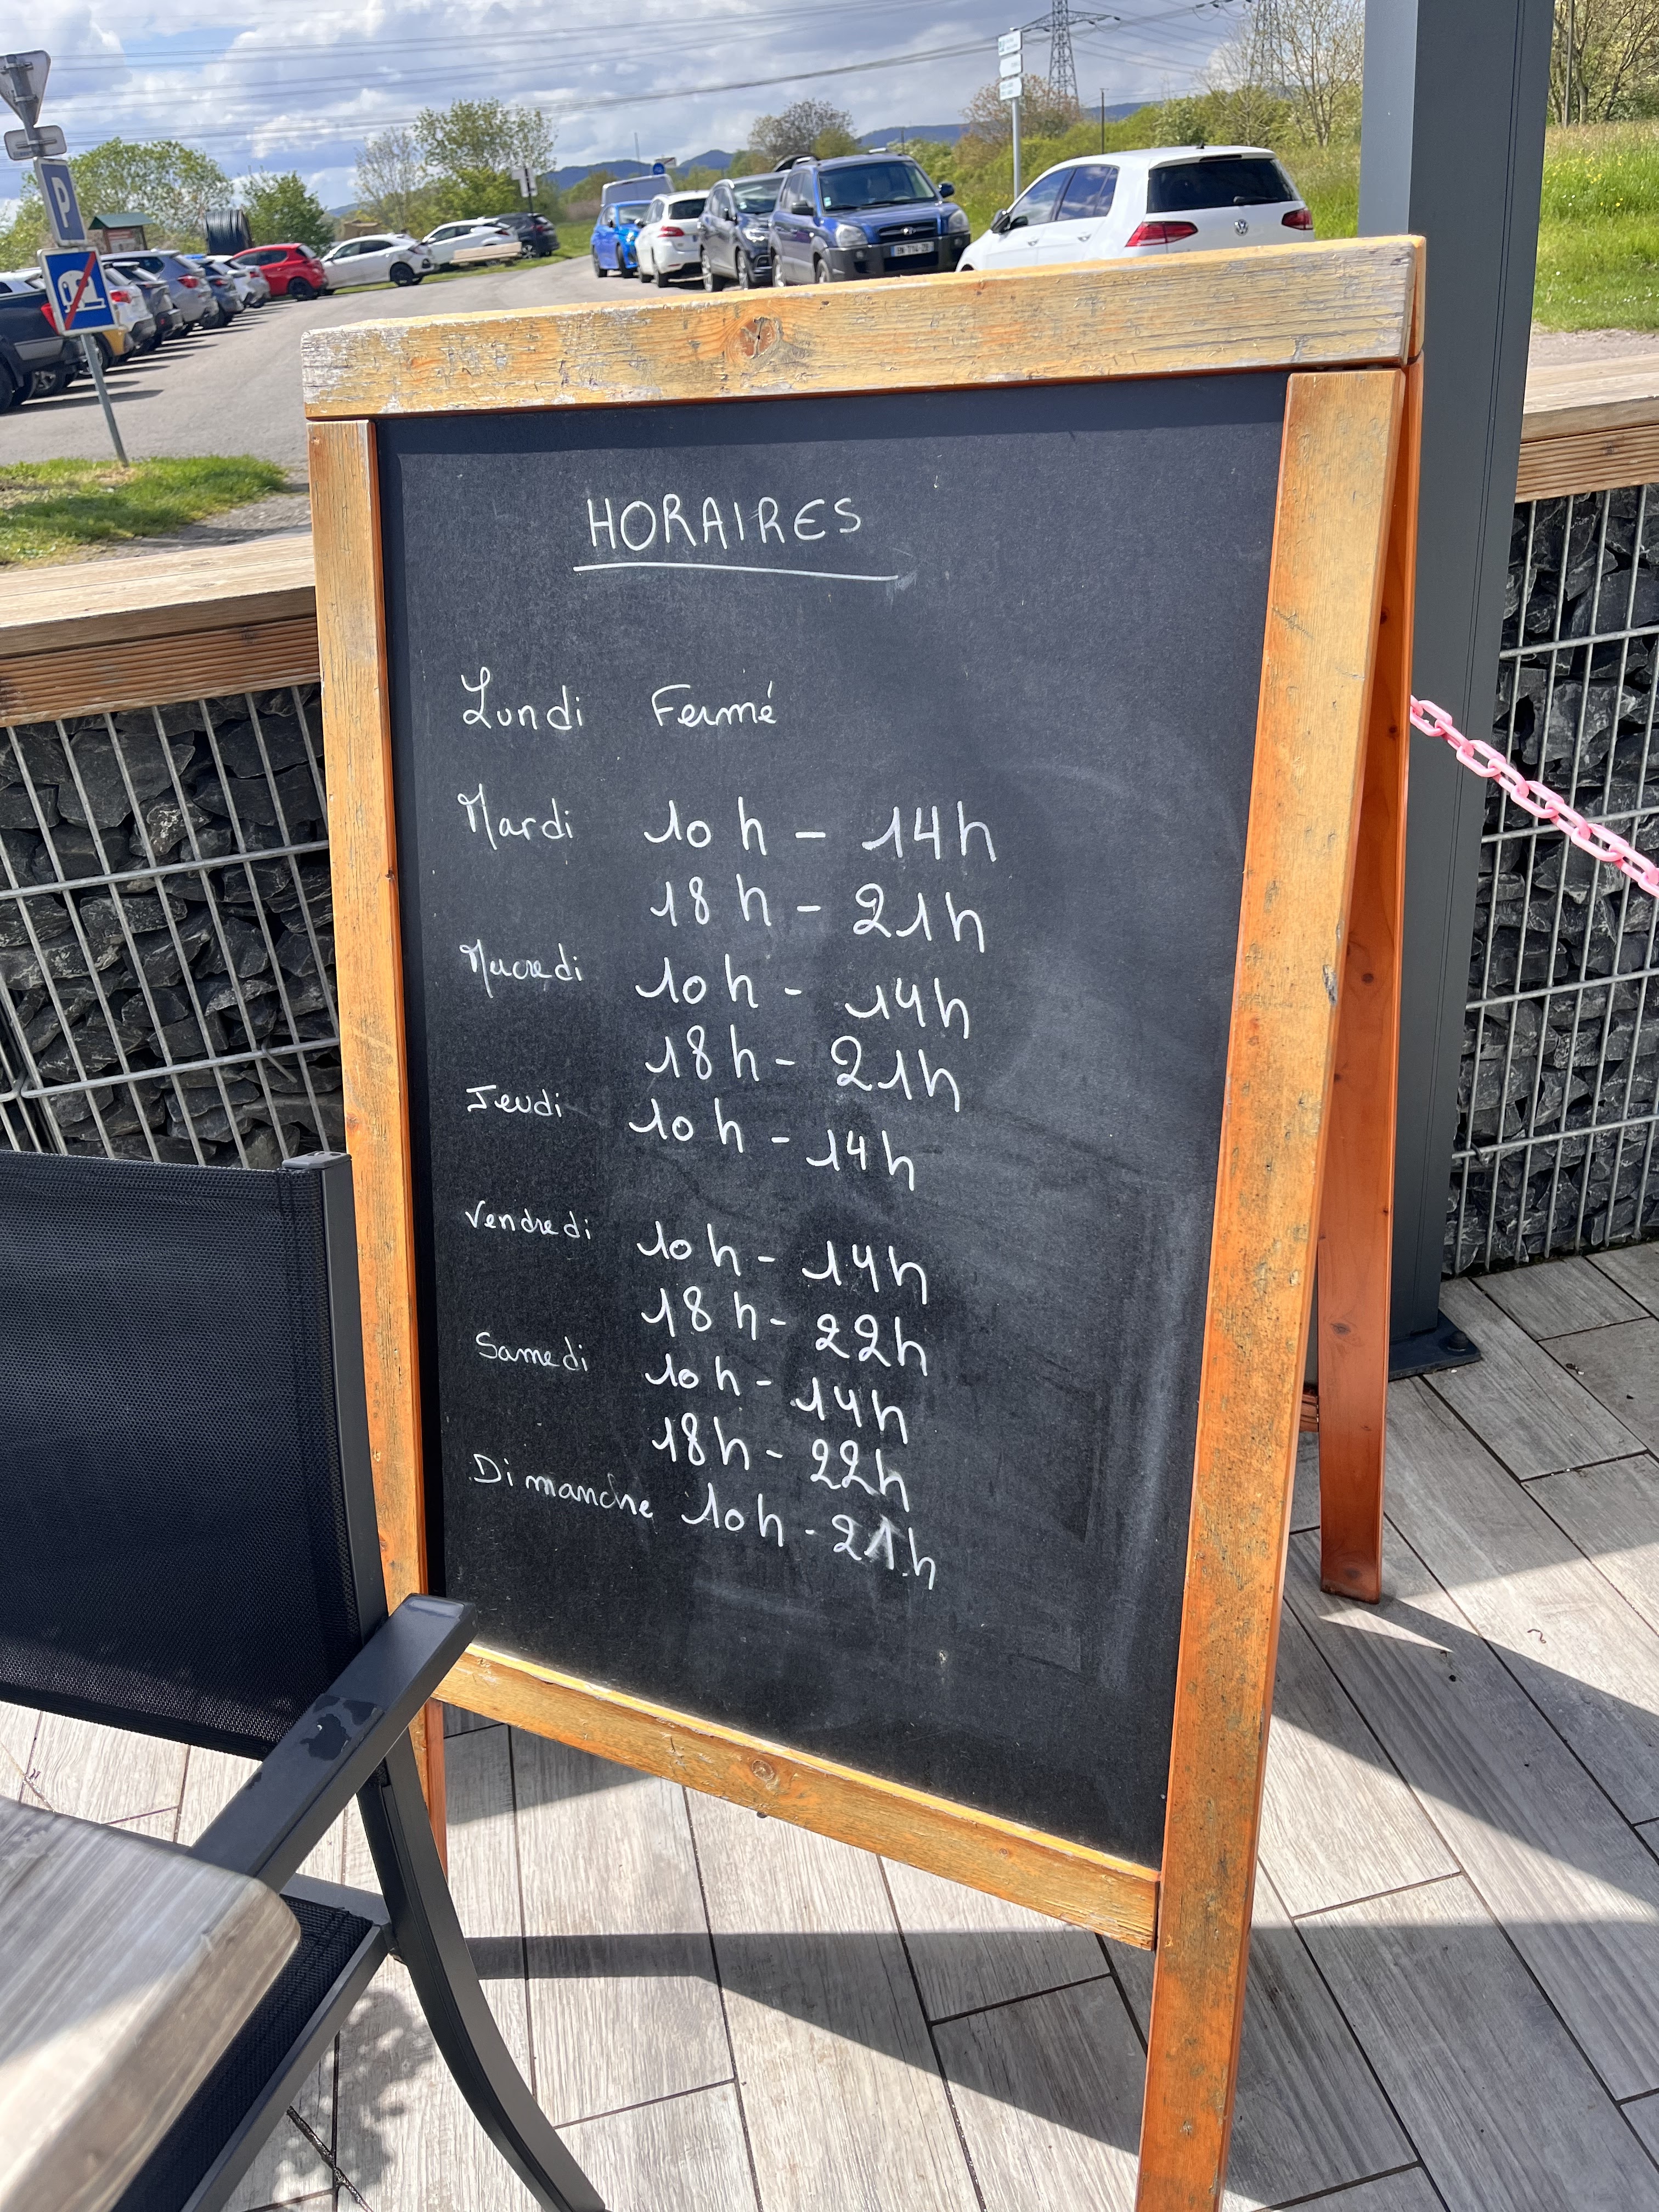 P
HORAIRES
Lundi Fermé
Mardi 10h - 14h
18h - 21h
Mercredi 10h - 14h
18h - 21h
Jeudi 10h - 14h
Vendredi 10h - 14h
18h - 22h
Samedi 10h - 14h
18h - 22h
Dimanche 10h - 21h